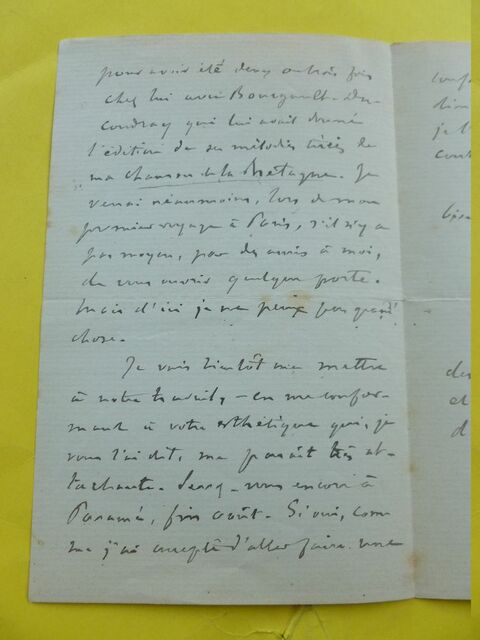 pour avoir été deux ou trois fois
chez lui avec Bourgault-Du-
coudray qui lui avait donné
l'édition de ses mélodies tirées de
ma chanson de la Bretagne. Je
verrai néanmoins, lors de mon
premier voyage à Paris, s'il n'y a
pas moyen, par des amis à moi,
de vous ouvrir quelque porte.
Mais d'ici je ne peux pas grand'
chose.
Je vais bientôt me mettre
à notre travail, en me confor-
mant à votre esthétique qui, je
vous l'ai dit, me paraît très at-
tachante. Serez-vous encore à
Paramé, fin août. Si oui, com
me j'ai accepté d'aller faire une
conf
je
con
des
et
d